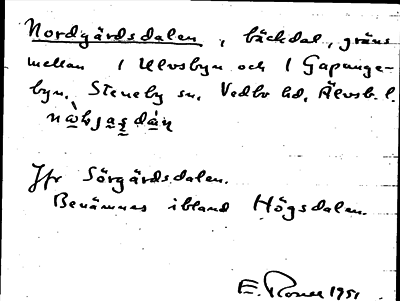 Nordgärdsdalen, bäckdal, gräns
mellan 1 Ulvsbyn och 1 Gapunge-
byn. Steneby sn. Vedbo hd. Älvsb. l.
Jfr Sörgärdsdalen.
Benämnes ibland Högsdalen.
E. 1951